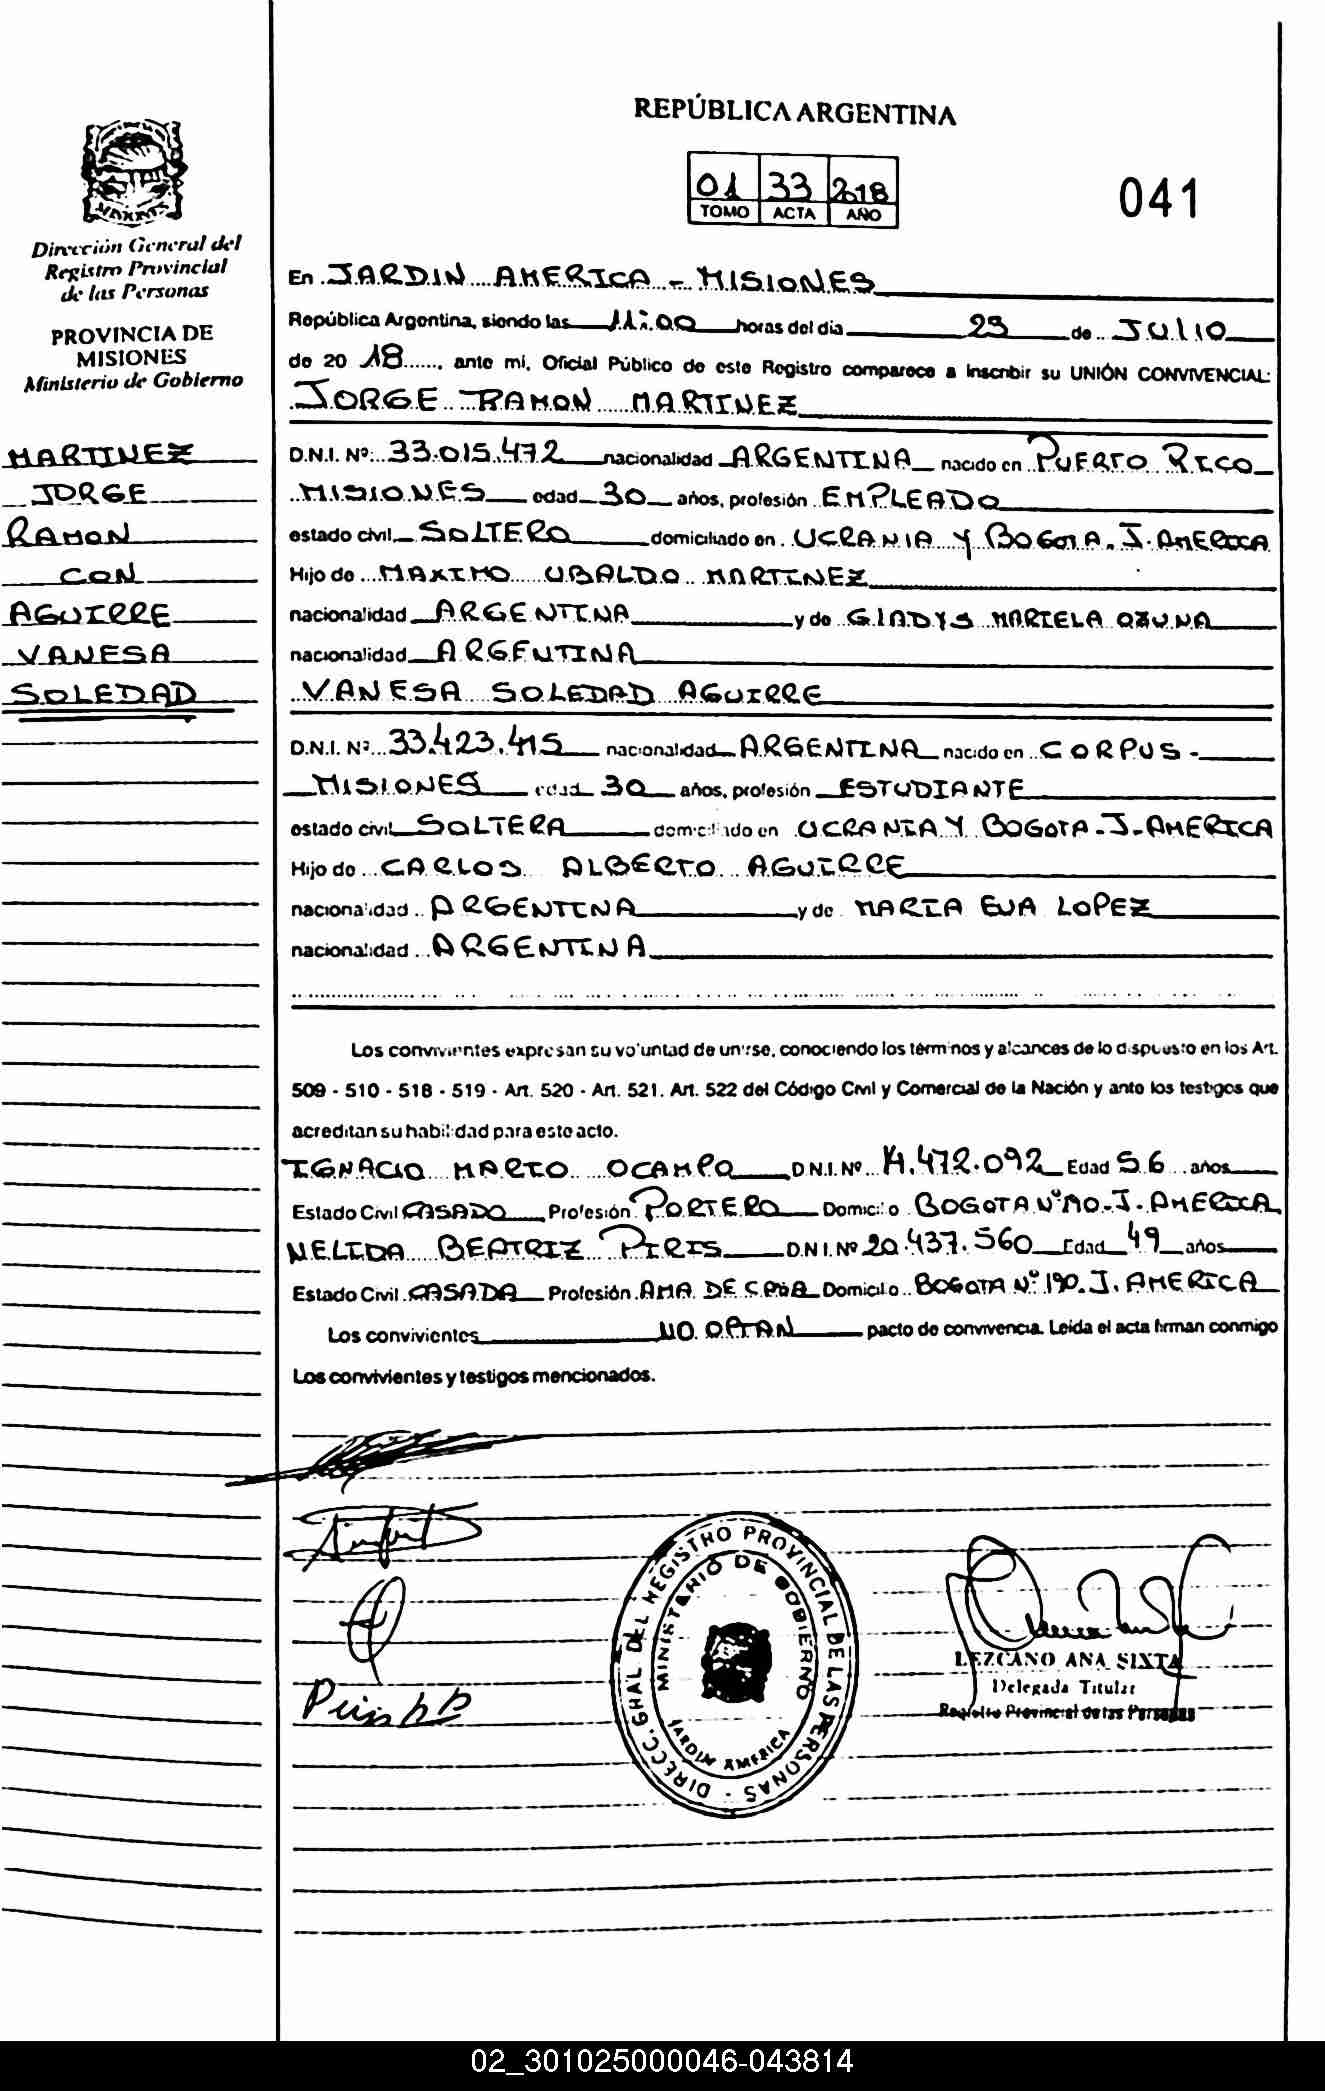 REPÚBLICA ARGENTINA
01 33 2018
TOMO ACTA AÑO
041
Dirección General del
Registro Provincial
de las Personas
PROVINCIA DE
MISIONES
Ministerio de Gobierno
MARTINEZ
JORGE
RAMON
CON
AGUIRRE
VANESA
SOLEDAD
En JARDIN AMERICA - MISIONES
República Argentina, siendo las 11:00 horas del día 23 de JULIO
de 20 18, ante mí, Oficial Público de este Registro comparece a inscribir su UNIÓN CONVIVENCIAL:
JORGE RAMON MARTINEZ
D.N.I. Nº 33.015.472 nacionalidad ARGENTINA nacido en PUERTO RICO
MISIONES edad 30 años, profesión EMPLEADO
estado civil SOLTERO domiciliado en UCRANIA Y BOGOTA. J. AMERICA
Hijo de MAXIMO UBALDO MARTINEZ
nacionalidad ARGENTINA y de GLADYS MARIELA OZUNA
nacionalidad ARGENTINA
VANESA SOLEDAD AGUIRRE
D.N.I. Nº 33.423.415 nacionalidad ARGENTINA nacido en CORPUS -
MISIONES edad 30 años, profesión ESTUDIANTE
estado civil SOLTERA domiciliado en UCRANIA Y BOGOTA - J. AMERICA
Hijo de CARLOS ALBERTO AGUIRRE
nacionalidad ARGENTINA y de MARIA EVA LOPEZ
nacionalidad ARGENTINA
Los convivientes expresan su voluntad de unirse, conociendo los términos y alcances de lo dispuesto en los Art.
509 - 510 - 518 - 519 - Art. 520 - Art. 521, Art. 522 del Código Civil y Comercial de la Nación y ante los testigos que
acreditan su habilidad para este acto.
IGNACIO MARIO OCAMPO D.N.I. Nº 14.472.092 Edad 56 años
Estado Civil CASADO Profesión PORTERO Domicilio BOGOTA Nº 190. J. AMERICA
NELIDA BEATRIZ PIRIS D.N.I. Nº 20.437.560 Edad 49 años
Estado Civil CASADA Profesión AMA DE CASA Domicilio BOGOTA Nº 190. J. AMERICA
Los convivientes NO OPTAN pacto de convivencia. Leída el acta firman conmigo
Los convivientes y testigos mencionados.
DIRECC. GRAL. DEL REGISTRO PROVINCIAL DE LAS PERSONAS
MINISTERIO DE GOBIERNO
JARDIN AMERICA
LEZCANO ANA SIXTA
Delegada Titular
Registro Provincial de las Personas
02_301025000046-043814